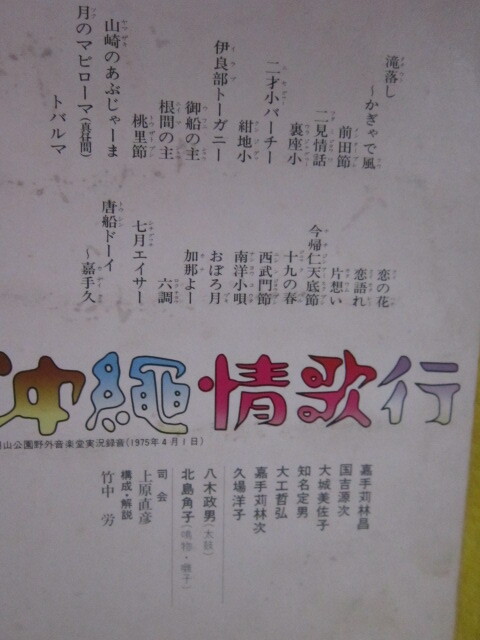 滝落し
～かぎゃで風
前田節
二見情話
裏座小
二才小バーチー
紺地小
伊良部トーガニー
御船の主
根間の主
桃里節
山崎のあぶじゃーま
月のマピローマ(真昼間)
トバルマ
恋の花
恋語れ
片想い
今帰仁天底節
十九の春
西武門節
南洋小唄
おぼろ月
加那よー
六調
七月エイサー
唐船ドーイ
～嘉手久
沖繩・情歌行
山公園野外音楽堂実況録音(1975年4月1日)
嘉手苅林昌
国吉源次
大城美佐子
知名定男
大工哲弘
嘉手苅林次
久場洋子
八木政男(太鼓)
北島角子(鳴物・囃子)
司会
上原直彦
構成・解説
竹中 労